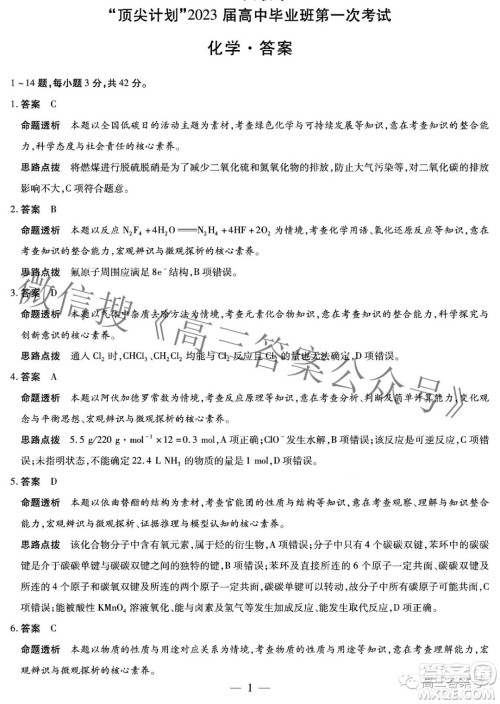 “顶尖计划”2023 届高中毕业班第一次考试
化学·答案
1~14 题,每小题 3 分,共 42 分。
1. 答案 C
命题透析 本题以全国低碳日的活动主题为素材,考查绿色化学与可持续发展等知识,意在考查知识的整合能
力,科学态度与社会责任的核心素养。
思路点拨 将燃煤进行脱硫脱硝是为了减少二氧化硫和氮氧化物的排放,防止大气污染等,对二氧化碳的排放
影响不大,C 项符合题意。
2. 答案 B
命题透析 本题以反应 N₂F₄ +4H₂O══N₂H₄ +4HF+2O₂ 为情境,考查化学用语、氧化还原反应等知识,意
在考查知识的整合能力,宏观辨识与微观探析的核心素养。
思路点拨 氟原子周围应满足 8e⁻结构,B 项错误。
3. 答案 D
命题透析 本题以气体中杂质去除方法为情境,考查元素化合物性质等知识,意在考查理解能力,科学探究与
创新意识的核心素养。
思路点拨 通入 Cl₂ 时,CHCl₃、CH₂Cl₂ 均能与 Cl₂ 反应且 Cl₂ 的无法确定,D 项错误。
4. 答案 A
命题透析 本题以阿伏加德罗常数为素材,考查反应原理等知识,意在考查分析、判断及简单计算能力,变化观
念与平衡思想、宏观辨识与微观探析的核心素养。
思路点拨 5.5 g/220 g·mol⁻¹ ×12=0.3 mol,A 项正确;ClO⁻发生水解,B 项错误;该反应是可逆反应,C 项错
误;未指明状态,不能确定 22.4 L NH₃ 的物质的量是 1 mol,D 项错误。
5. 答案 D
命题透析 本题以依曲替酯的结构为素材,考查官能团的性质与结构等知识,意在考查观察、理解与知识整合
能力,宏观辨识与微观探析、证据推理与模型认知的核心素养。
思路点拨 该化合物分子中含有氧元素,属于烃的衍生物,A 项错误;分子中只有 4 个碳碳双键,苯环中的碳碳
键是介于碳碳单键与碳碳双键之间的独特的键,B 项错误;分子中苯环及所连的 6 个原子一定共面,碳碳双键及
所连的 4 个原子和碳氧双键及所连的两个原子一定共面,故分子中所有的碳原子可能处于同一平面上,C
项错误;能被酸性 KMnO₄ 溶液氧化、能与卤素及氢气等发生加成反应,D 项正确。
6. 答案 C
命题透析 本题以物质的性质与用途对应关系为情境,考查物质的性质与用途等知识,意在考查理解能力,宏
观辨识与微观探析的核心素养。
— 1 —
微信搜《高三答案公众号》
高三答案号
答案圈